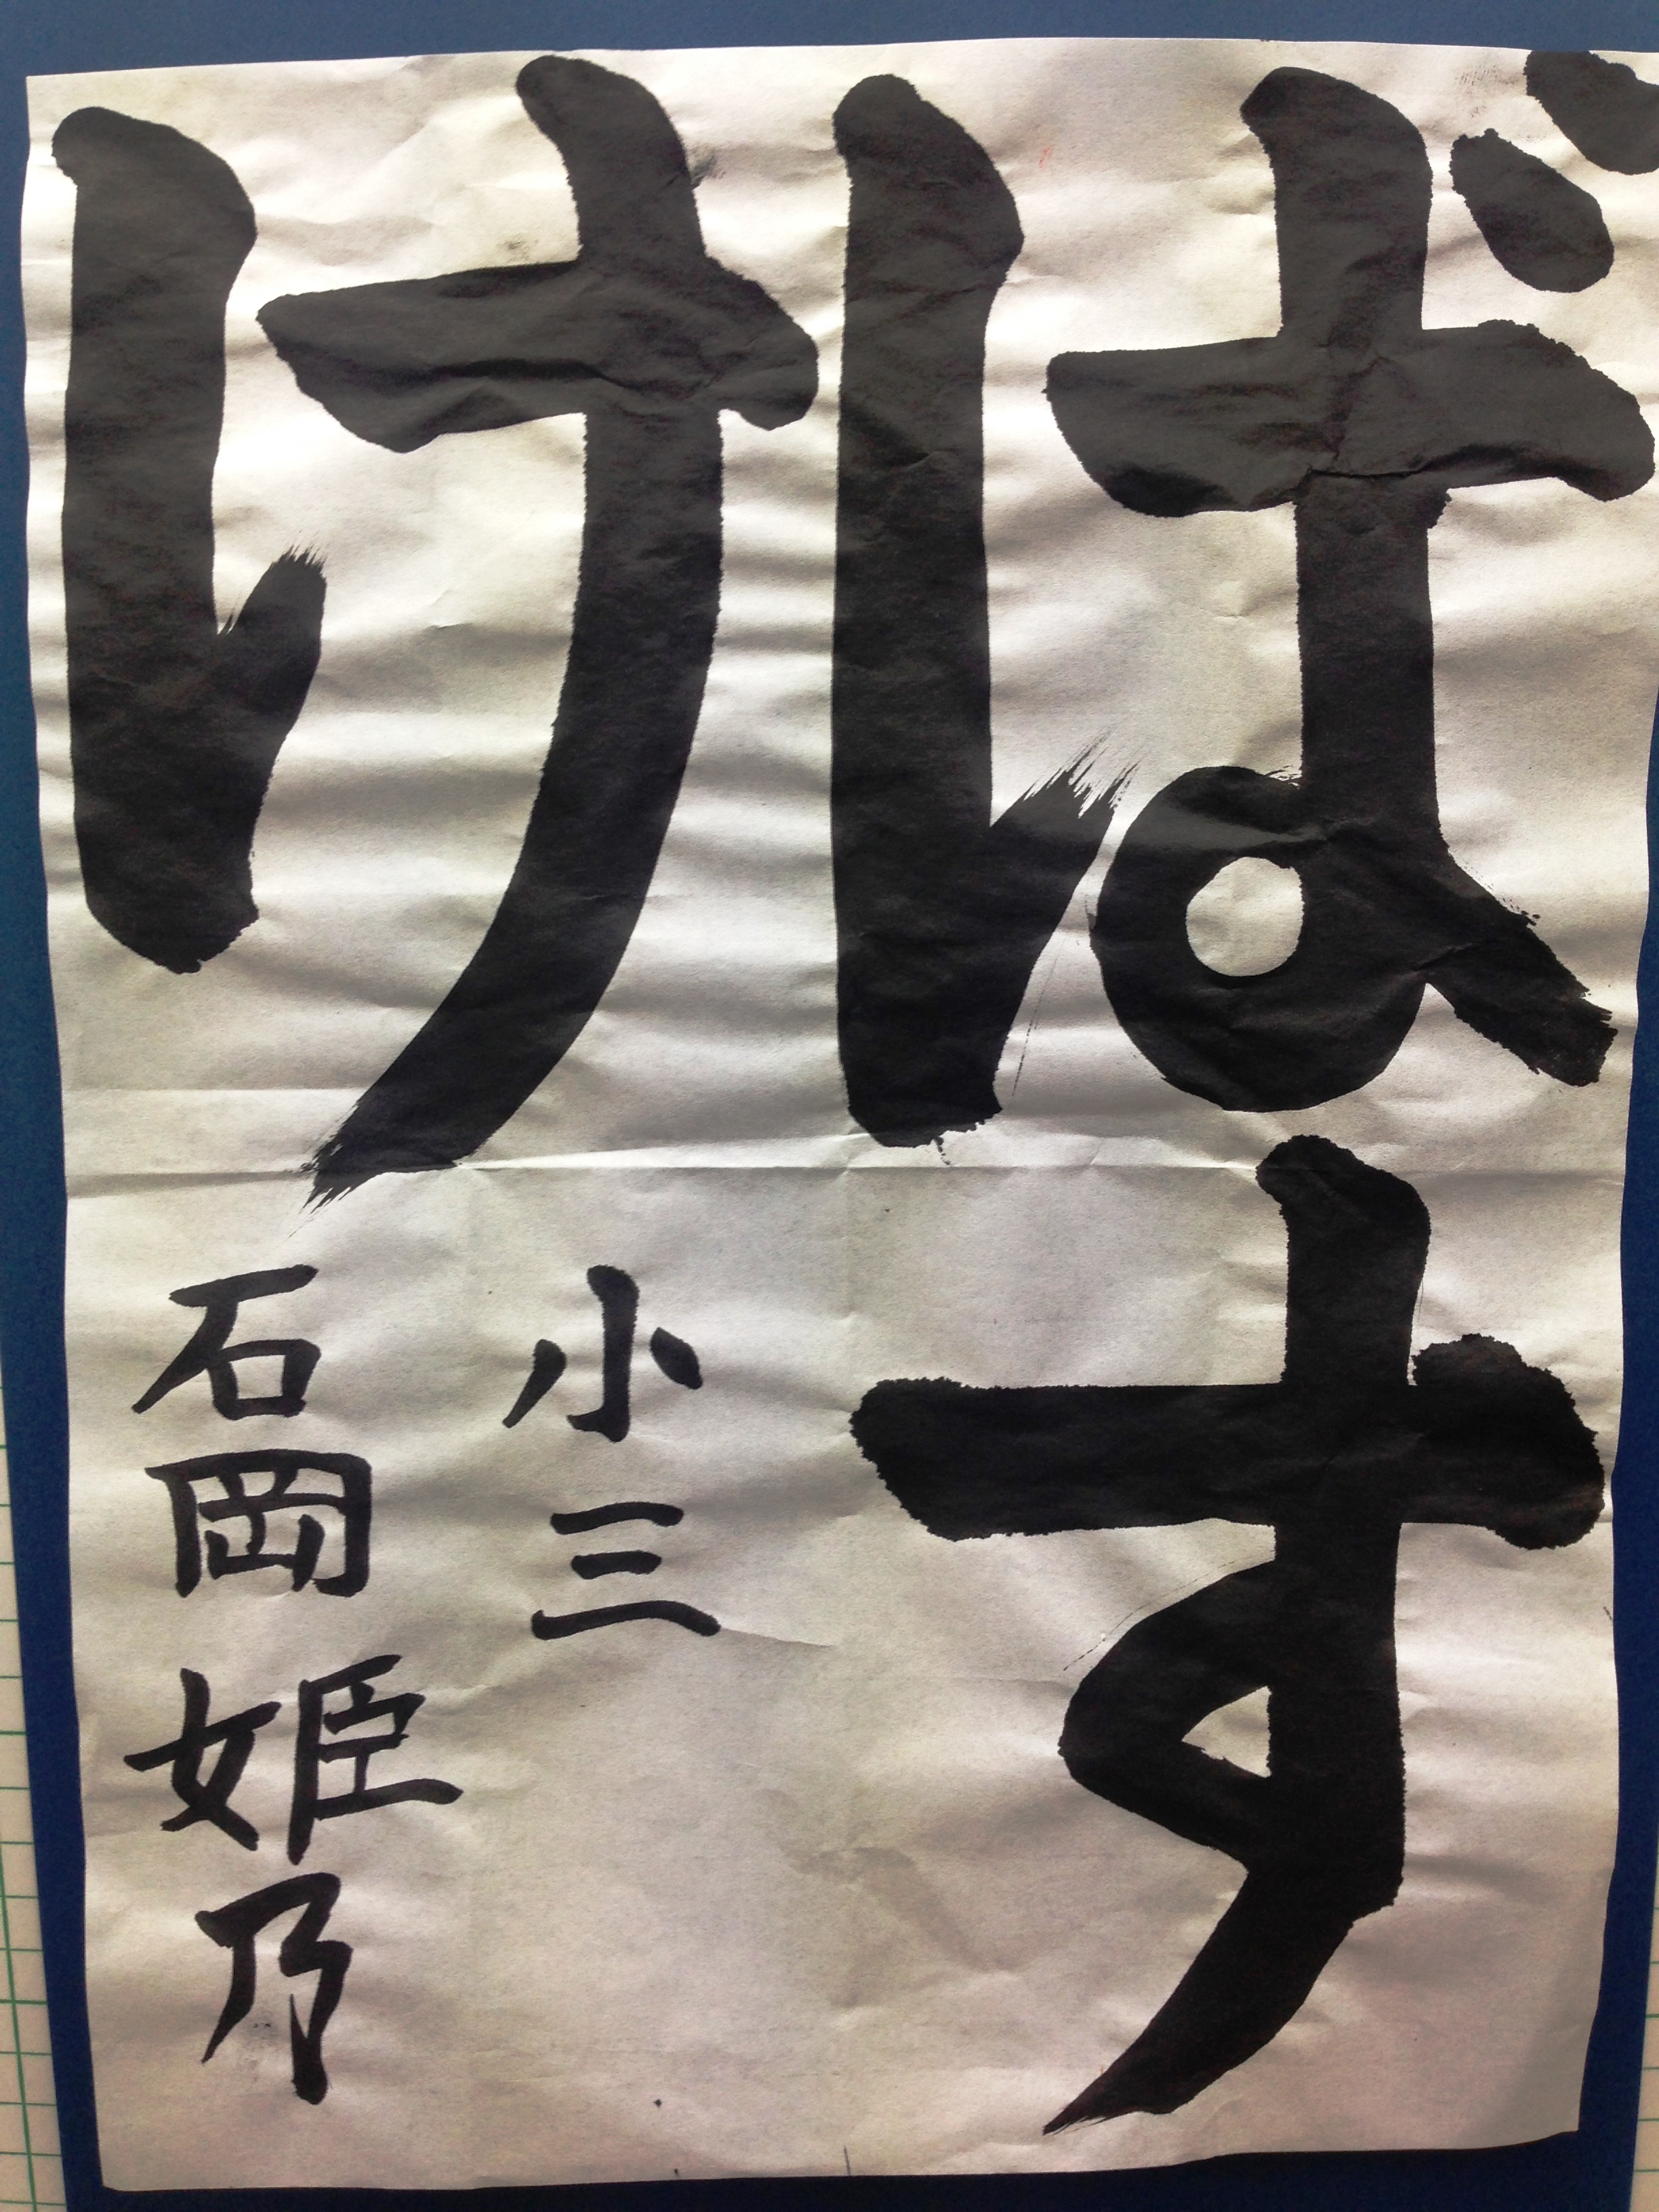 ばす
け
小三
石岡姫乃